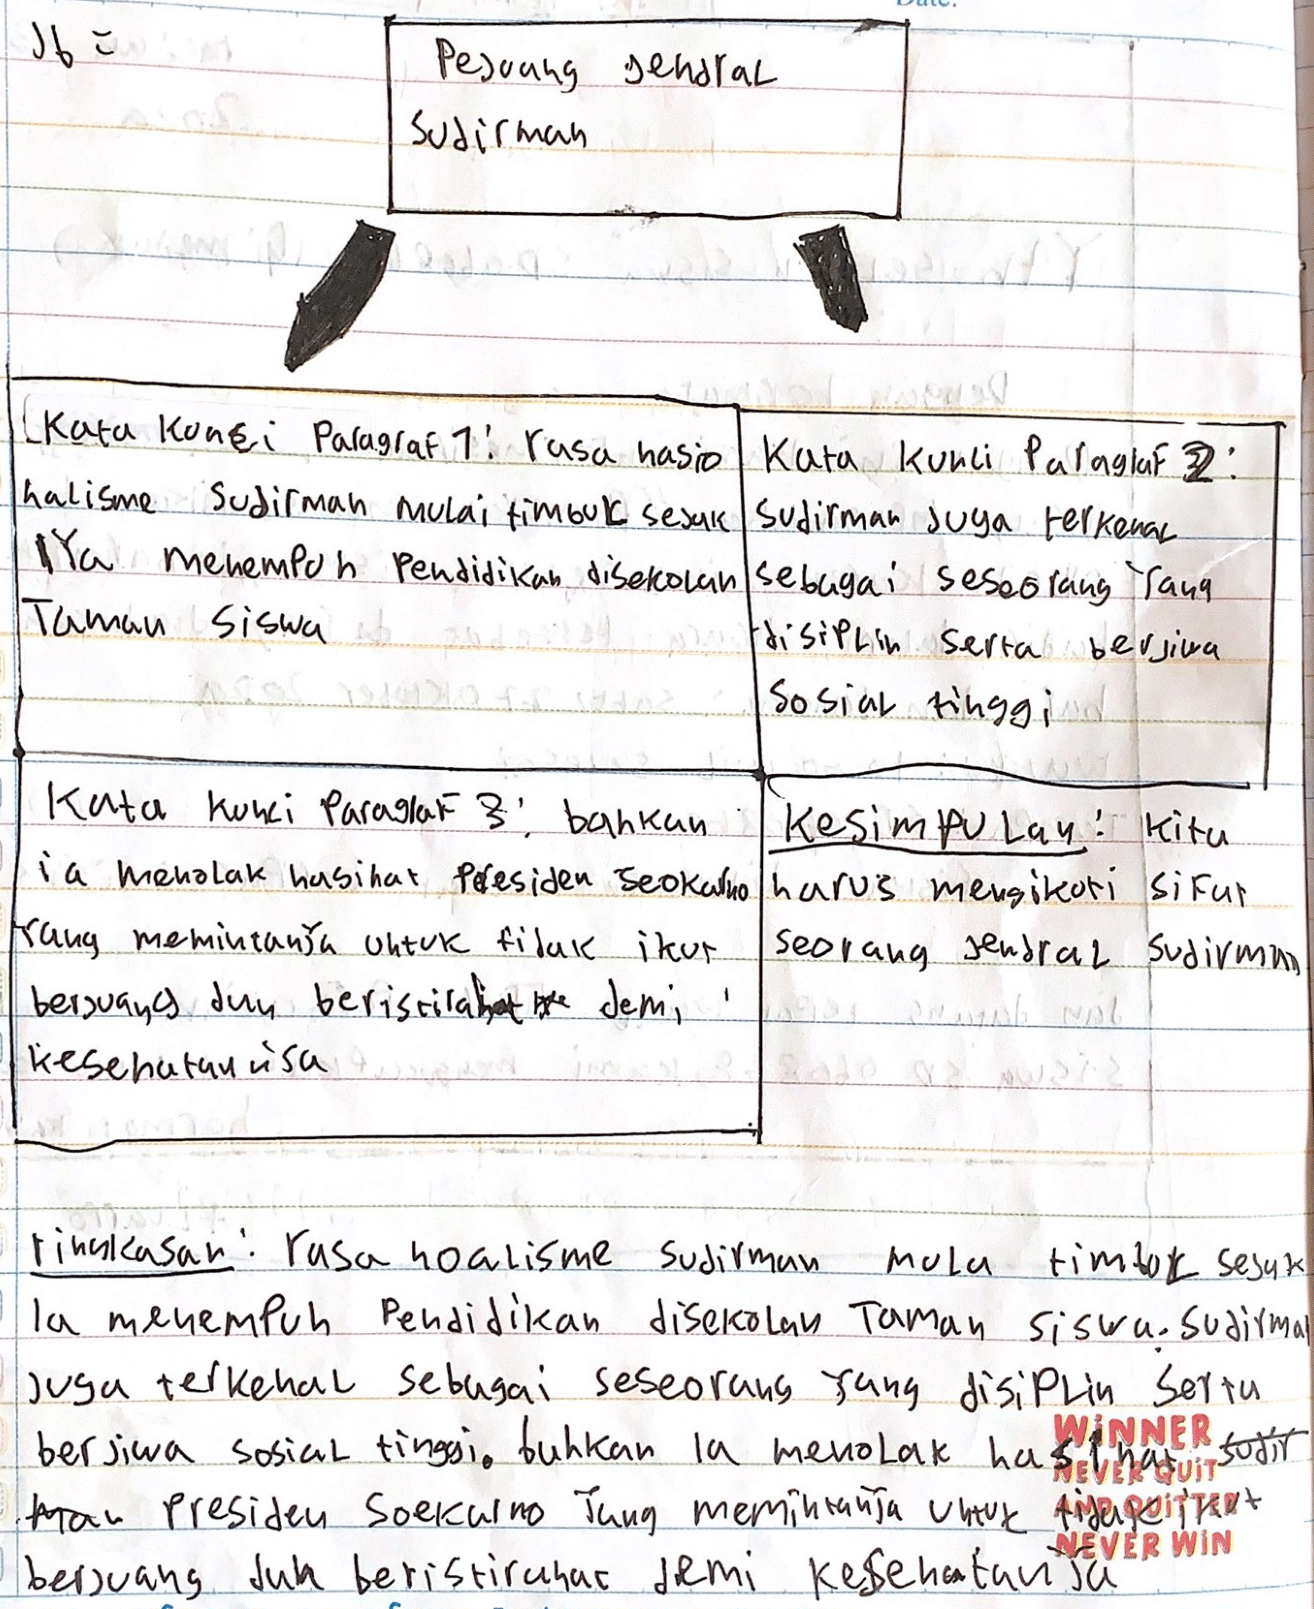 Date.
Jb =
Pejuang jendral
Sudirman
Kata Kunci Paragraf 1: rasa nasio
nalisme Sudirman mulai timbul sejak
iya menempuh Pendidikan disekolah
Taman Siswa
Kata kunci Paragraf 2:
Sudirman juga terkenal
sebagai seseorang yang
disiplin serta berjiwa
Sosial tinggi
Kata kunci Paragraf 3: bahkan
ia menolak nasihat Presiden Seokarno
yang memintanya untuk tidak ikut
berjuang dan beristirahat demi
kesehatannisa
Kesimpulan: Kita
harus mengikuti sifat
seorang jendral Sudirman
ringkasan: rasa noalisme Sudirman mula timbul sejak
Ia menempuh Pendidikan disekolah Taman Siswa. Sudirman
juga terkenal sebagai seseorang yang disiplin Serta
berjiwa sosial tinggi. bahkan Ia menolak nasihat Sudir
man Presiden Soekarno yang memintanya untuk tidak ikut
berjuang dan beristirahat demi kesehatanya
WINNER
NEVER QUIT
AND QUITTER
NEVER WIN